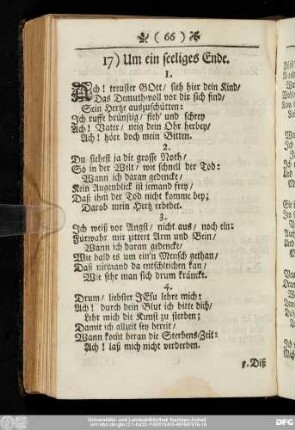 ( 66 )
17) Um ein seeliges Ende.
1.
Ach! treuster GOtt/ sieh hier dein Kind/
Das Demuthsvoll vor dir sich find/
Sein Hertze auszuschütten:
Ich ruffe brünstig/ sieh' und schrey
Ach! Vater/ neig dein Ohr herbey/
Ach! höre doch mein Bitten.
2.
Du siehest ja die grosse Noth/
So in der Welt/ wie schnell der Tod:
Wann ich daran gedencke/
Kein Augenblick ist jemand frey/
Daß ihm der Tod nicht komme bey;
Darob mein Hertz erbebet.
3.
Ich weiß vor Angst/ nicht aus/ noch ein:
Fürwahr mir zittert Arm und Bein/
Wann ich daran gedencke/
Wie bald es um ein'n Mensch gethan/
Daß niemand da entfliehen kan/
Wie sehr man sich drum kränckt.
4.
Drum/ liebster JEsu lehre mich:
Ach! durch dein Blut ich bitte dich/
Lehr mich die Kunst zu sterben;
Damit ich allzeit sey bereit/
Wann kom̃t heran die Sterbens-Zeit:
Ach! laß mich nicht verderben.
5. Diß